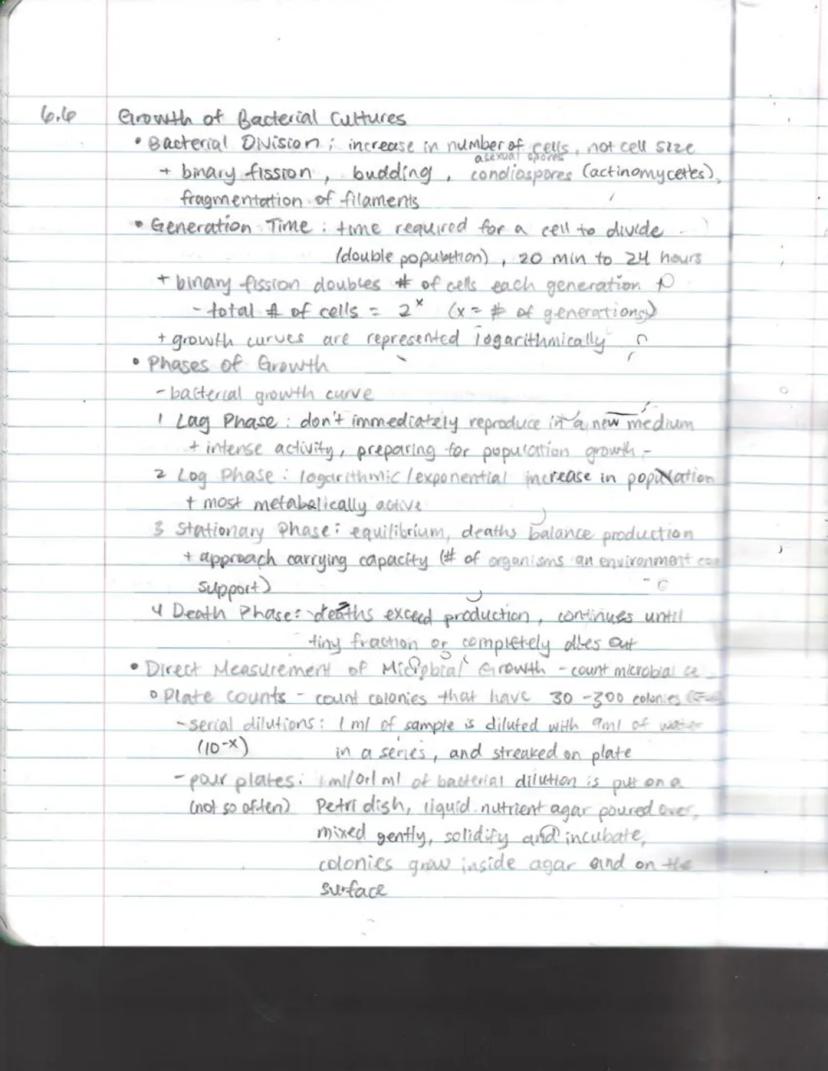 6.6 Growth of Bacterial Cultures
• Bacterial Division: increase in number of cells, not cell size
asexual spores
+ binary fission, budding, condiospores (actinomycetes),
fragmentation of filaments
• Generation Time: time required for a cell to divide
(double population), 20 min to 24 hours
+ binary fission doubles # of cells each generation
- total # of cells = 2^x (x = # of generations)
+ growth curves are represented logarithmically
• Phases of Growth
- bacterial growth curve
1 Lag Phase: don't immediately reproduce in a new medium
+ intense activity, preparing for population growth -
2 Log Phase: logarithmic/exponential increase in population
+ most metabolically active
3 Stationary Phase: equilibrium, deaths balance production
+ approach carrying capacity (# of organisms an environment can
support)
4 Death Phase: deaths exceed production, continues until
tiny fraction or completely dies out
• Direct Measurement of Microbial Growth - count microbial ce
o Plate counts - count colonies that have 30-300 colonies
- serial dilutions: 1 ml of sample is diluted with 9ml of water
(10^-x) in a series, and streaked on plate
- pour plates: 1ml/0.1 ml of bacterial dilution is put on a
(not so often) Petri dish, liquid nutrient agar poured over,
mixed gently, solidify and incubate,
colonies grow inside agar and on the
surface